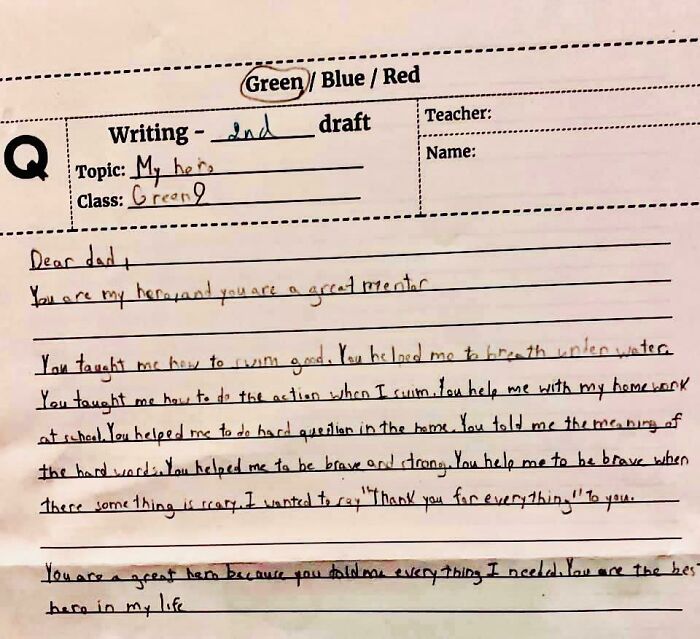 Green / Blue / Red
Q
Writing - 2nd draft
Teacher:
Topic: My hero
Name:
Class: Green 9
Dear dad,
You are my hero, and you are a great mentor
You taught me how to swim good. You helped me to breath under water.
You taught me how to do the action when I swim. You help me with my home work
at school. You helped me to do hard question in the home. You told me the meaning of
the hard words. You helped me to be brave and strong. You help me to be brave when
there some thing is scary. I wanted to say "Thank you for everything" to you.
You are a great hero because you told me every thing I needed. You are the bes
hero in my life